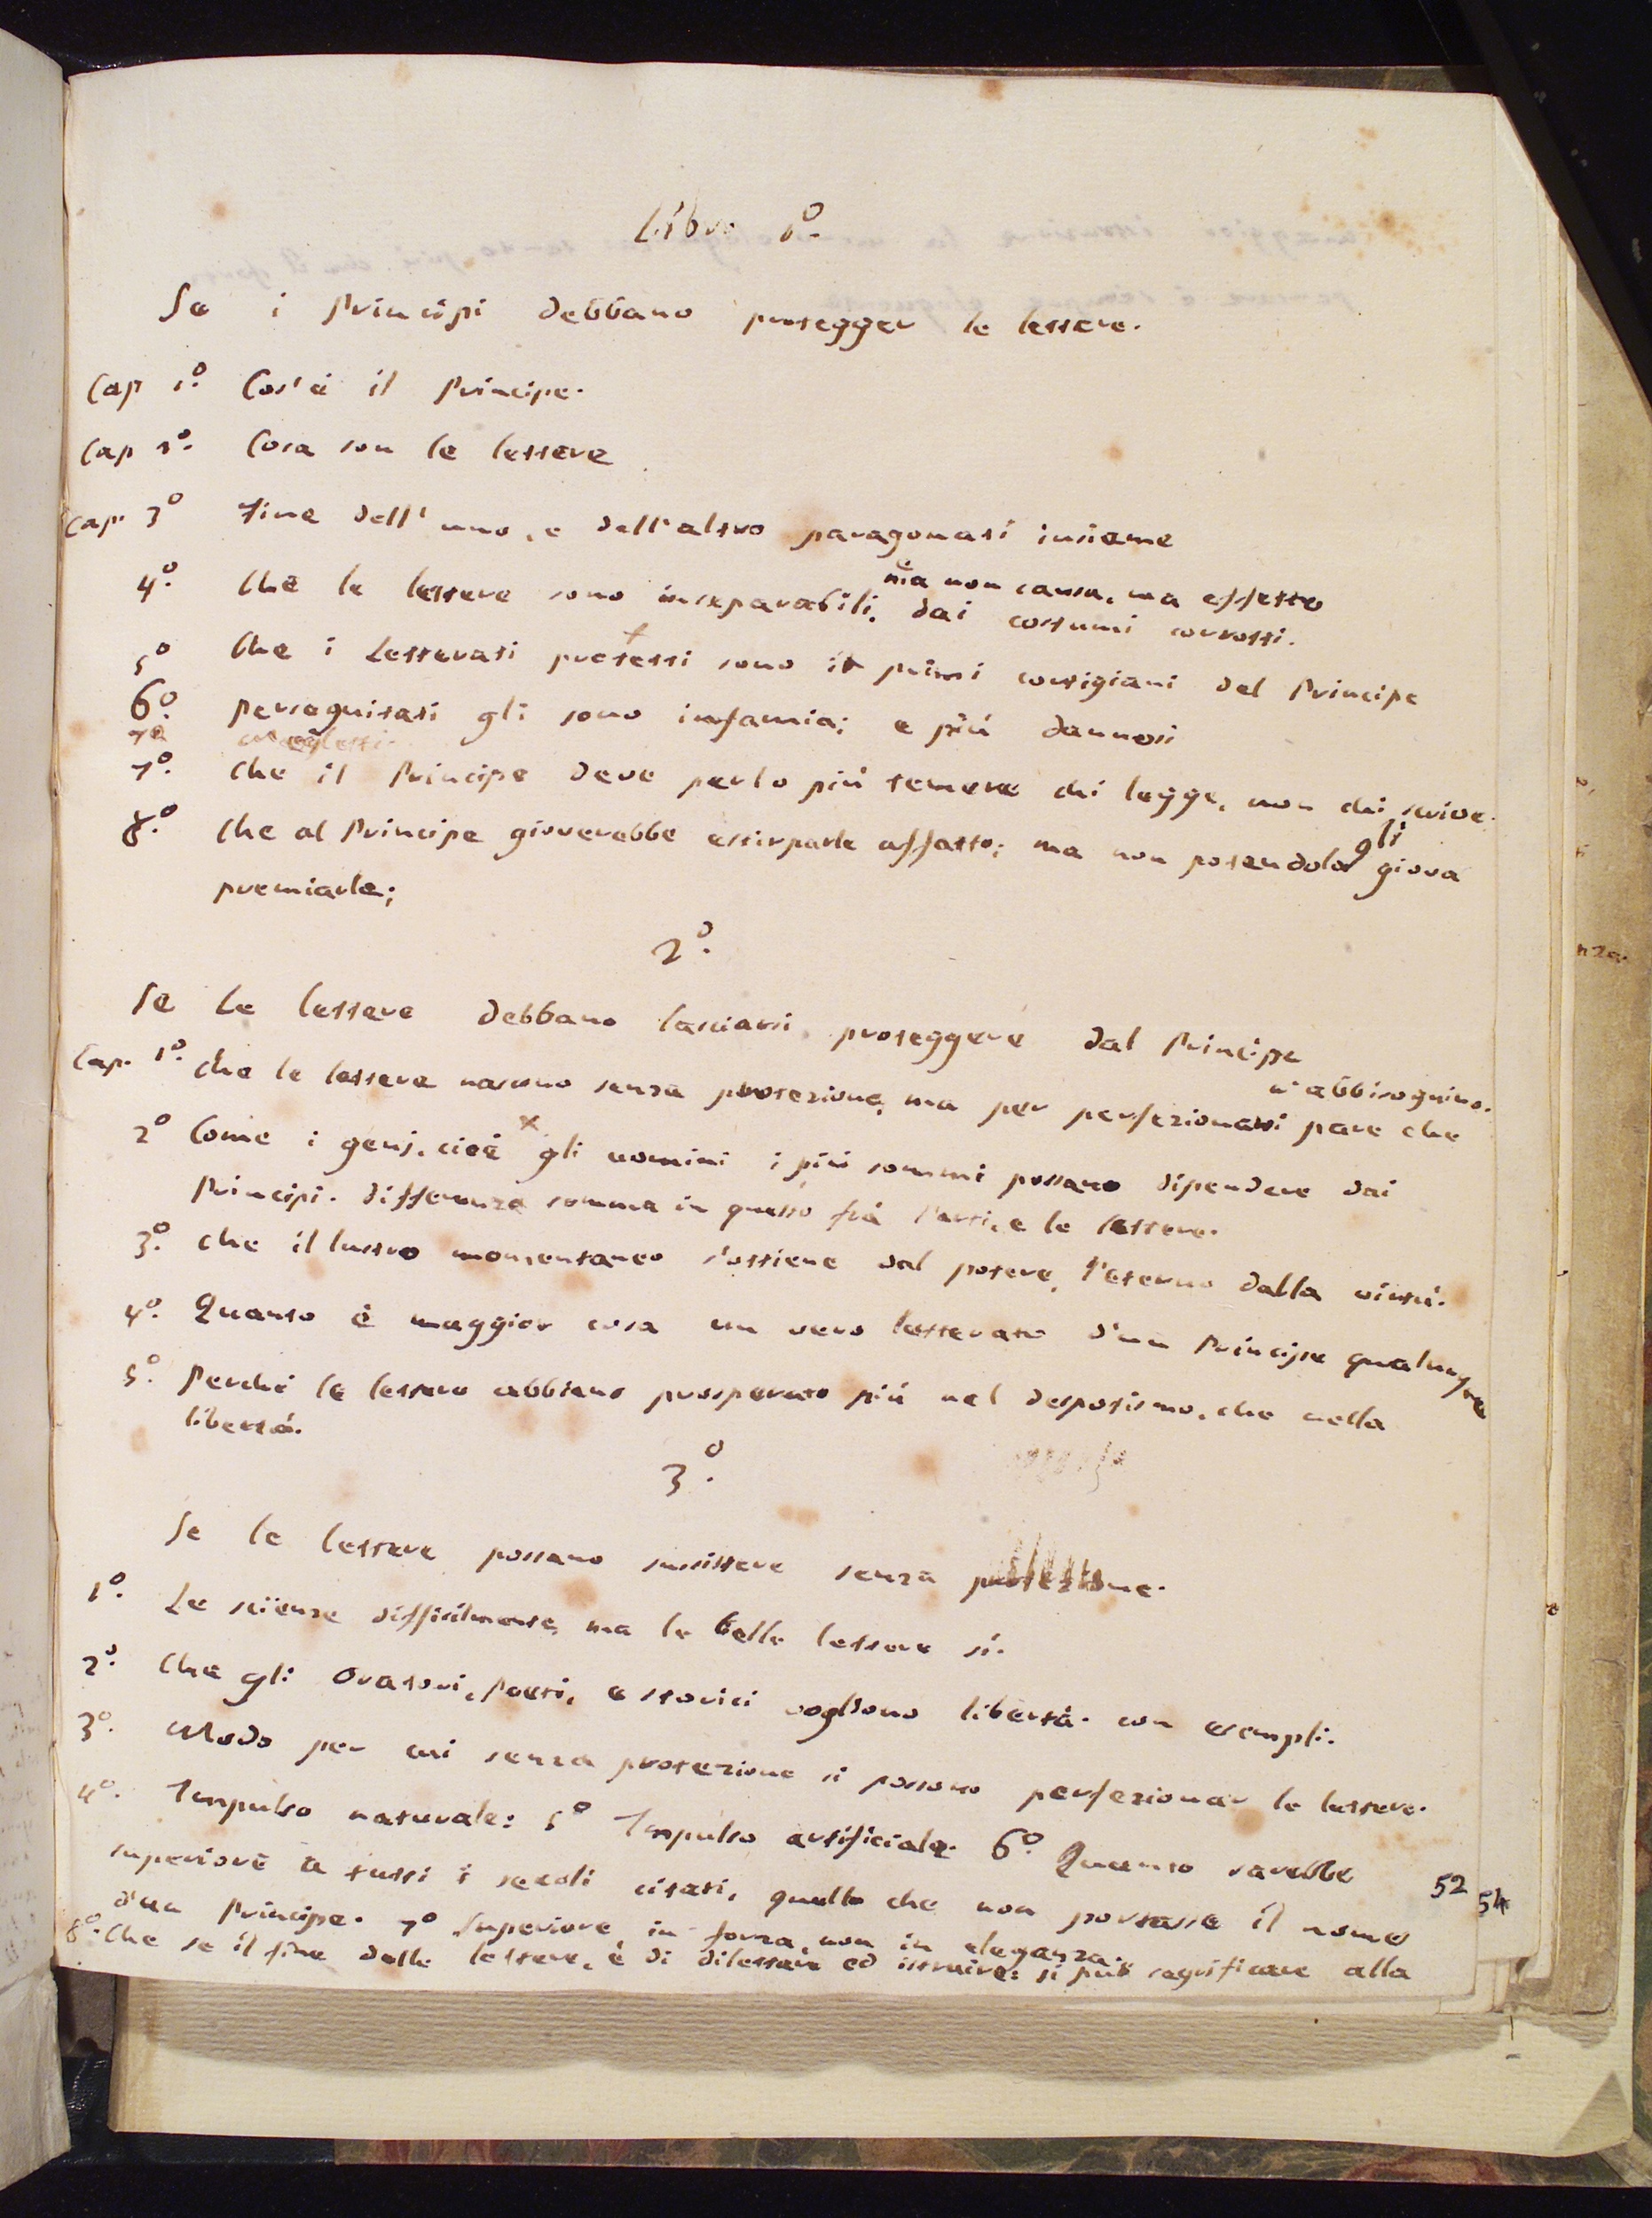 Libro 1.º
Se i Principi debbano protegger le lettere.
Cap 1.º Cos'è il Principe.
Cap 2.º Cosa son le lettere
Cap. 3º Fine dell'uno, e dell'altro paragonati insieme
ma non causa, ma effetto
4.º Che le lettere sono inseparabili, dai costumi corrotti.
5º Che i Letterati protetti sono i primi cortigiani del Principe
6.º perseguitati gli sono infamia; e più dannosi
7º negletti.
7.º Che il Principe deve perlo più temere chi legge, non chi scrive.
8.º Che al Principe gioverebbe estirparle affatto; ma non potendolo gli giova
premiarle;
2.º
Se Le lettere debbano lasciarsi proteggere dal Principe
n'abbisognino.
Cap. 1.º Che le lettere nascono senza protezione, ma per perfezionarsi pare che
2º Come i genj, cioè gli uomini i più sommi possano dipendere dai
Principi. differenza somma in questo frà l'arti, e le lettere.
3.º Che il lustro momentaneo s'ottiene dal potere, l'eterno dalla virtù.
4.º Quanto è maggior cosa un vero letterato d'un Principe qualunque
5.º Perché le lettere abbiano prosperato più nel despotismo, che nella
libertà.
3.º
Se le lettere possano sussistere senza protezione.
1.º Le scienze difficilmente, ma le belle lettere sì.
2.º Che gli Oratori, Poeti, e storici vogliono libertà. con esempli.
3.º Modo per cui senza protezione si possono perfezionar le lettere.
4.º Impulso naturale: 5º Impulso artificiale. 6º Quanto sarebbe
superiore a tutti i secoli citati, quello che non portasse il nome
d'un Principe. 7º Superiore, in forza, non in eleganza.
8.º Che se il fine delle lettere, è di dilettare ed istruire: si può sagrificare alla
52
54